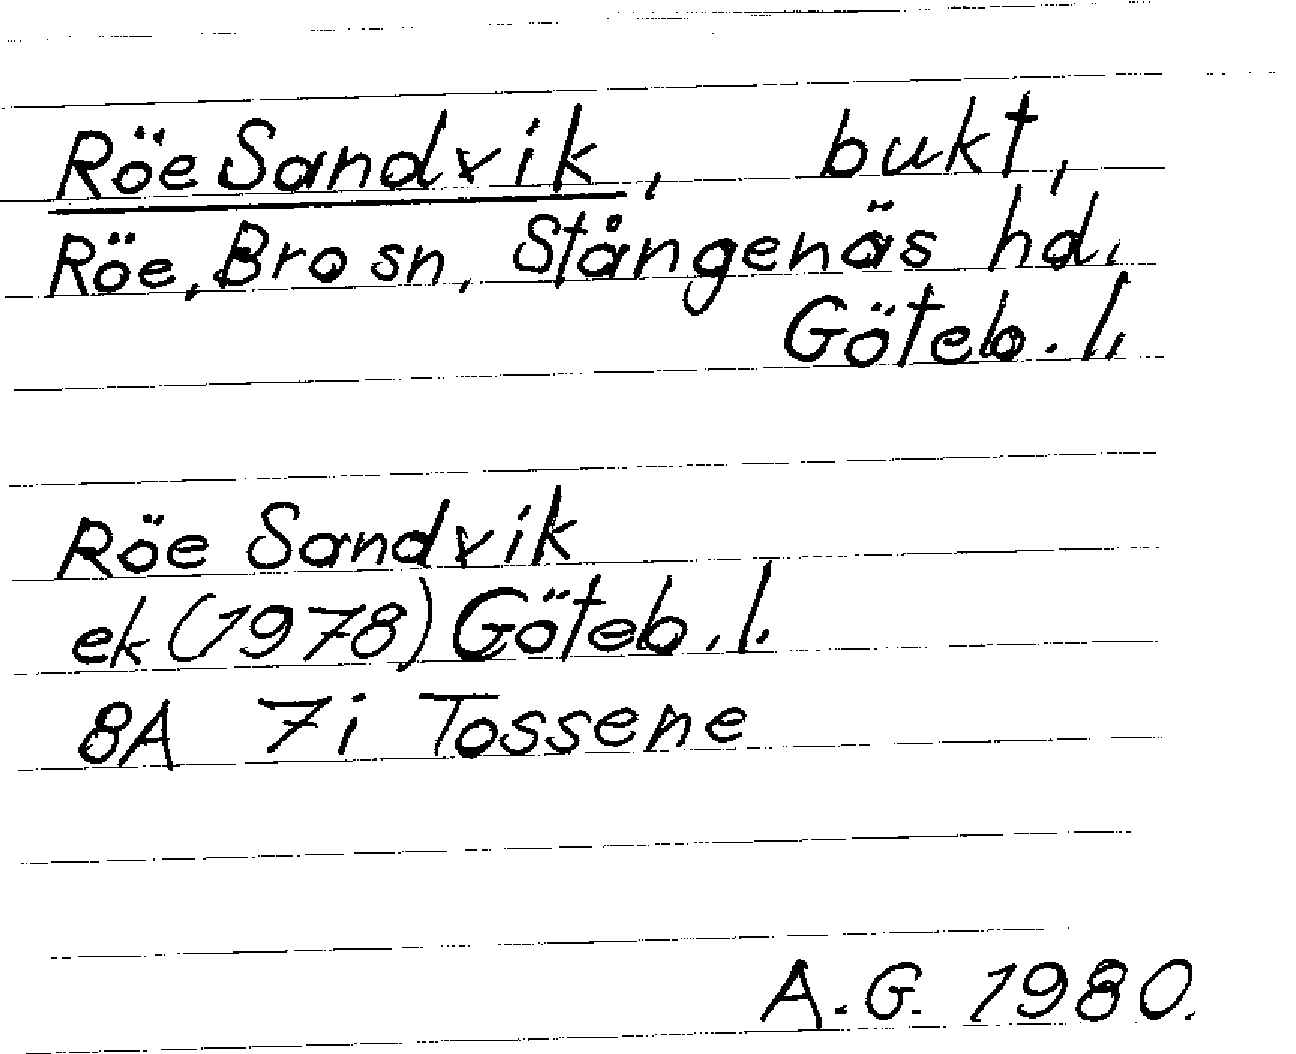 Röe Sandvik, bukt,
Röe, Bro sn, Stångenäs hd,
Göteb. l,
Röe Sandvik
ek (1978) Göteb. l.
8A 7i Tossene
A.G. 1980.